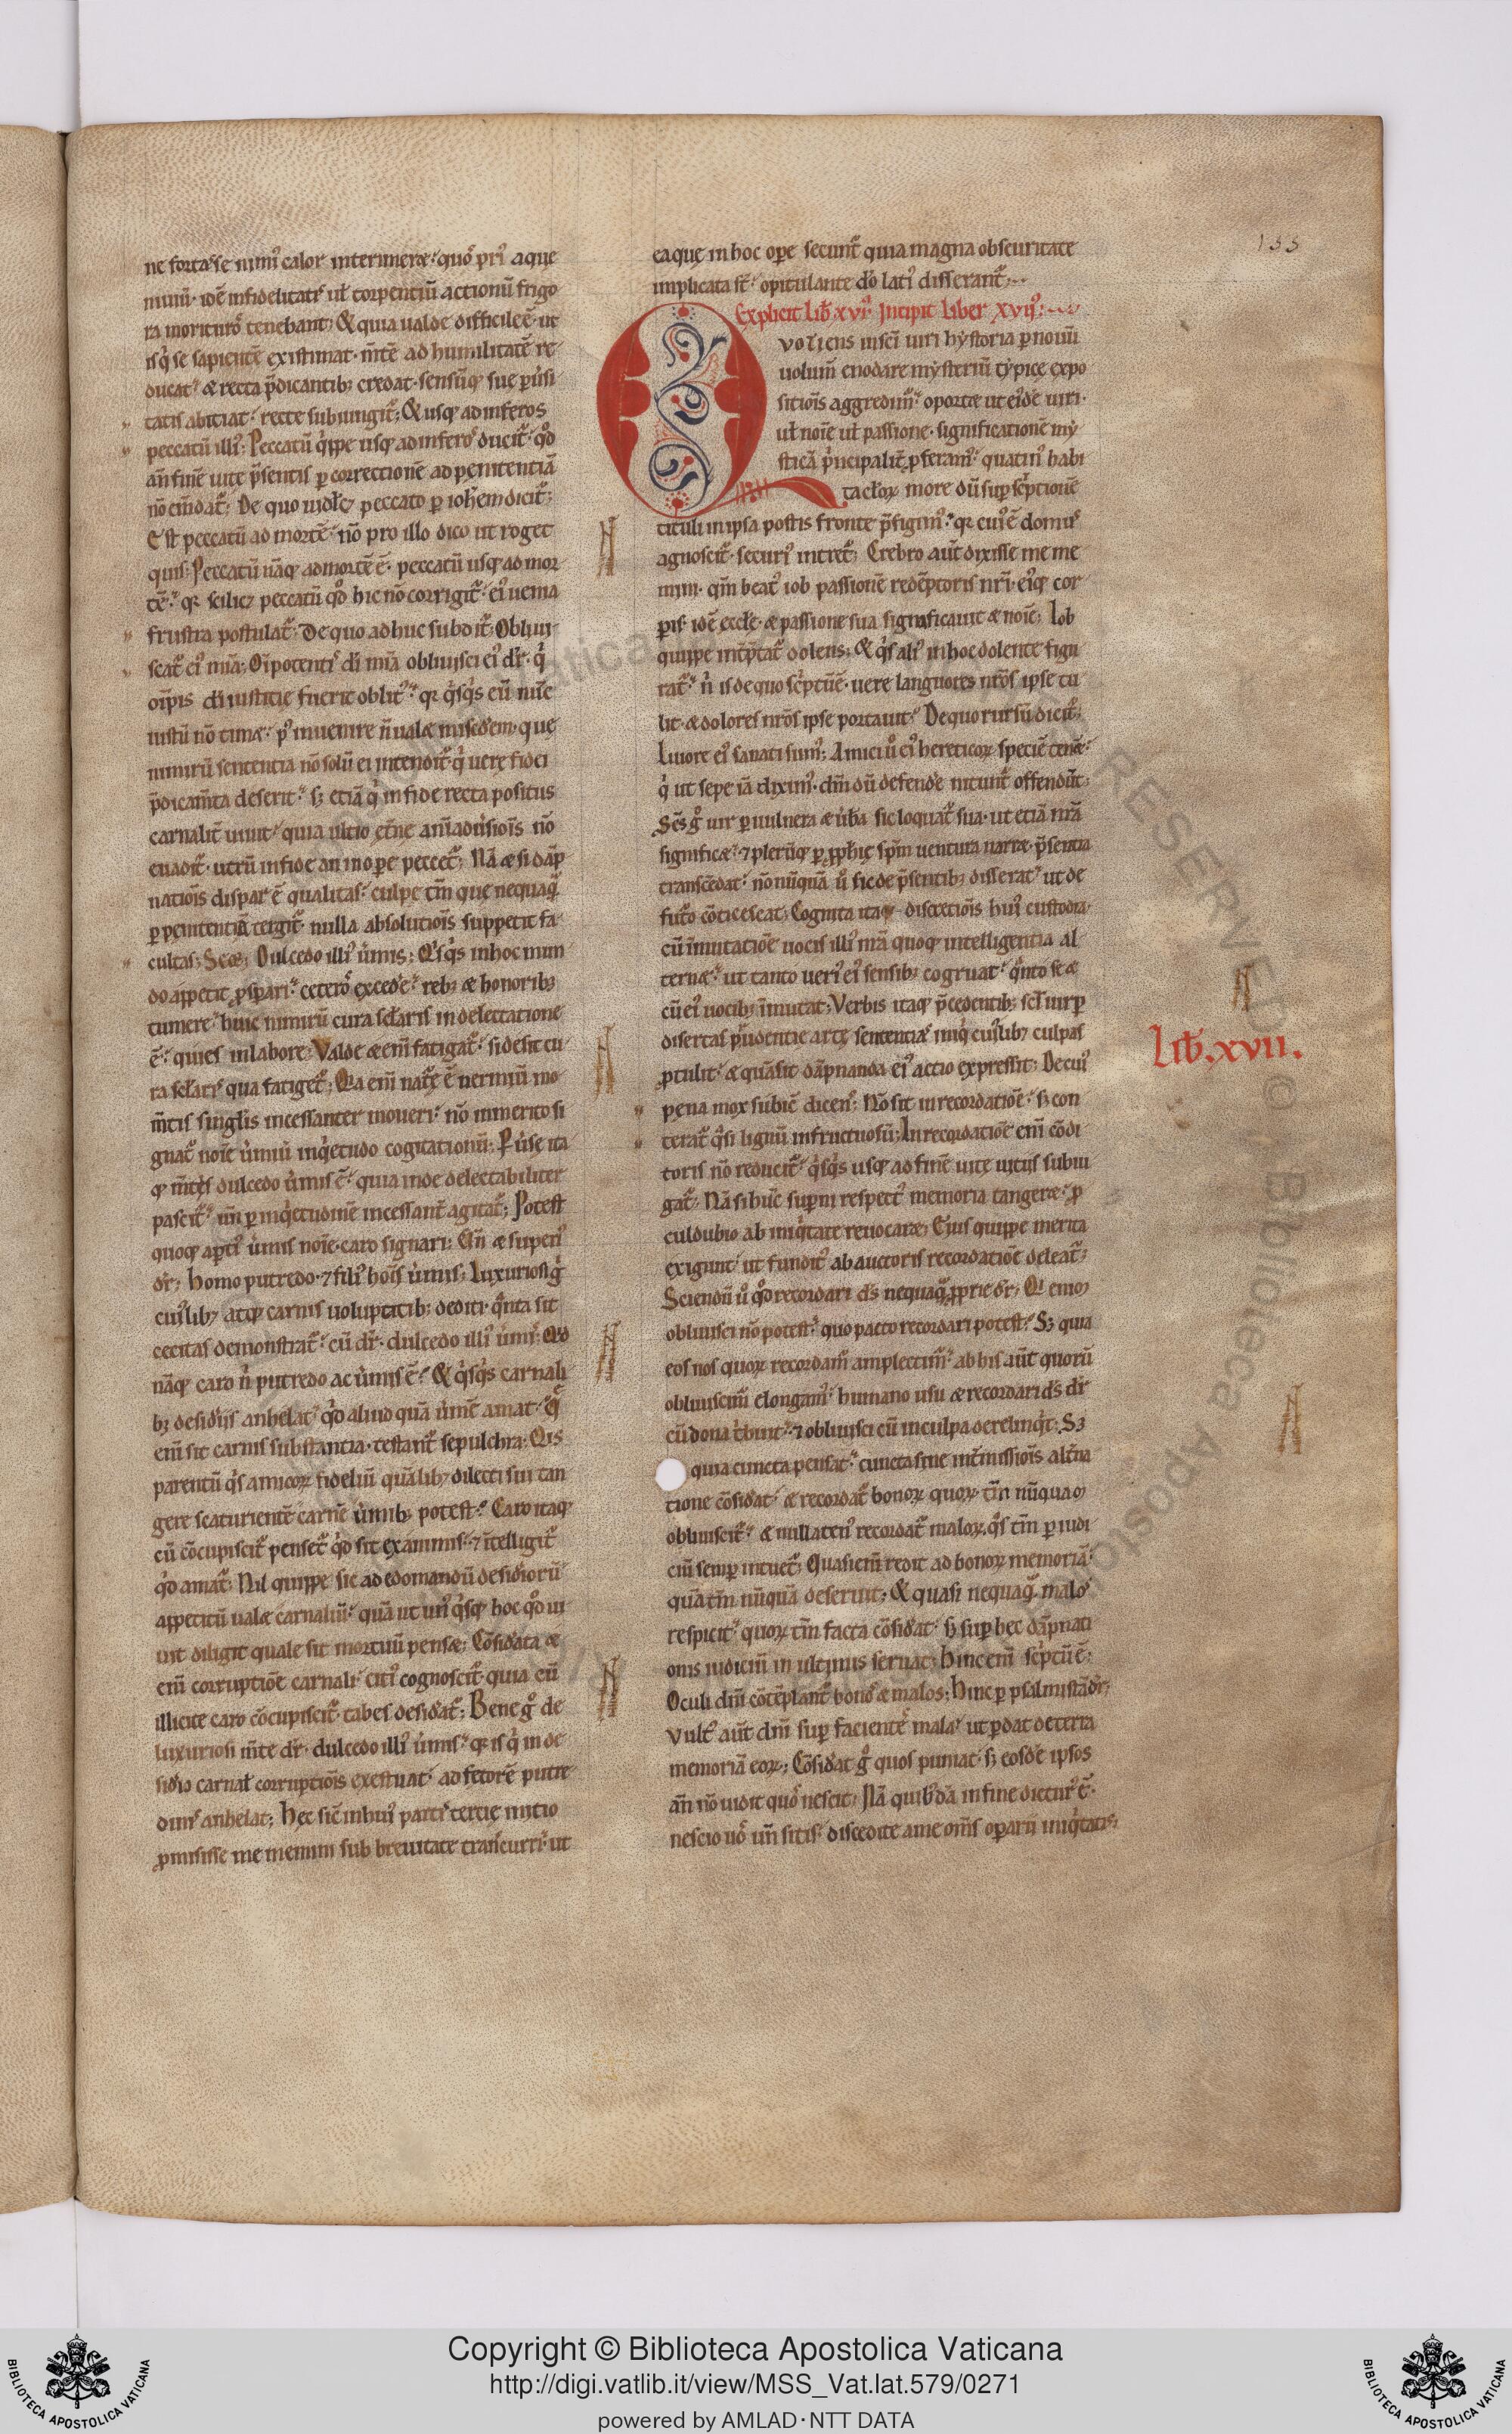 133
ne fortasse nimi᷒ calor interimeret quos pri᷒ aque
nimiũ idẽ infidelitatis ul̃ torpentiũ actionũ frigo
ra morituros tenebant; & quia ualde difficile ẽ ut
isq̇ se sapientẽ existimat m̃tẽ ad humilitatẽ re
ducat & recta p̃dicantib; credat sensũq; sue puersi
tatis abiciat recte subiungit᷒; & usq; ad inferos
peccatũ illi᷒; Peccatũ q̇ppe usq; ad inferos ducit᷒ qđ
añ finẽ uite p̃sentis p correctionẽ ad penitentiã
nõ em̃dat᷒; De quo uidelicet peccato p ioh̃em dicit᷒;
Est peccatũ ad mortẽ nõ pro illo dico ut roget
quis; Peccatũ nãq; ad mortẽ ẽ peccatũ usq; ad mor
tẽ qr scilicet peccatũ qđ hic nõ corrigit᷒ ei᷒ uenia
frustra postulat᷒; De quo adhuc subdit᷒; Obliui
scat᷒ ei᷒ mĩa; Om̃ipotentis dĩ mĩa obliuisci ei᷒ dr̃ q̇
om̃ipĩs dĩ iustitie fuerit oblit᷒ qr q̇sq̇s eũ nũc
iustũ nõ timet p᷒ inuenire ñ ualet misc̃dem que
nimirũ sententia nõ solũ ei intendit᷒ q̇ uere fidei
p̃dicam̃ta deserit s; etiã q̇ in fide recta positus
carnalit̃ uiuit quia ultio et̃ne animaduersiõis nõ
euadit᷒ utrũ in fide an in ope peccet᷒; Nã & si dãp
natiõis dispar ẽ qualitas culpe tm̃ que nequaq̃
p penitentiã tergit᷒ nulla absolutiõis suppetit fa
cultas; Dulcedo illi᷒ u̇mis; Q̇sq̇s in hoc mun
do appetit p̃spari ceteros excedẽ reb; & honorib;
tumere huic nimirũ cura sc̃laris in delectatione
ẽ quies in labore; Valde & eni᷒ fatigat᷒ si desit cu
ra sc̃laris qua fatiget᷒; Q̃a em̃ nat̃e ẽ uermiũ mo
m̃tis singl̃is incessanter moueri nõ inmerito si
gnat᷒ noĩe u̇miũ inq̇etudo cogitationũ; Puerse ita
q; m̃tis dulcedo u̇mis ẽ quia inde delectabiliter
pascit᷒ uñ p inq̇etudinẽ incessant̃ agitat᷒; Potest
quoq; apti᷒ u̇mis noĩe caro signari; Uñ & superi᷒
dr̃; Homo putredo & fili᷒ hoĩs u̇mis; Luxuriosi g᷒
cui᷒lib; atq; carnis uoluptatib; dediti q̃nta sit
cecitas demonstrat᷒ cũ dr̃ dulcedo illi᷒ u̇mis; Qđ
nãq; caro ñ putredo ac u̇mis ẽ & q̇sq̇s carnali
b; desiđiis anhelat q̇d aliud quã u̇mẽ amat q̃
em̃ sit carnis substantia testant᷒ sepulchra; Q̇s
parentũ q̇s amicor; fideliũ quãlib; dilecti sui tan
gere scaturientẽ carnẽ u̇mib; potest Caro itaq;
cũ cõcupiscit᷒ penset᷒ q̇d sit exanimis & ĩtelligit᷒
q̇d amat᷒; Nil quippe sic ad edomandũ desiđiorũ
appetitũ ualet carnaliũ quã ut un᷒ q̇sq; hoc qđ ui
uũ diligit quale sit mortuũ penset; Cõsiđata &
em̃ corruptiõe carnali citi᷒ cognoscit᷒ quia cũ
illicite caro cõcupiscit᷒ tabes desiđat᷒; Bene g᷒ de
luxuriosi m̃te dr̃ dulcedo illi᷒ u̇mis qr is q̇ in de
siđio carnal̃ corruptiõis exestuat ad fetorẽ putre
dinis anhelat; Hec sic̃ in hui᷒ partis tercie initio
p̃misisse me memini sub breuitate transcurri ut
eaque in hoc ope secunt᷒ quia magna obscuritate
implicata st̃ opitulante dõ lati᷒ disserant᷒
Explicit lib̃ xvi᷒ Incipit liber xvii᷒
Qvotiens in sc̃i uiri hystoria p nouũ
uolum̃ enodare mysteriũ typice expo
sitiõis aggredim᷒ oportet ut ei᷒dẽ uiri
ul̃ noĩe ul̃ passione significationẽ my
sticã p̃ncipalit̃ p̃feram᷒ quatin᷒ habi
taclor; more dũ sup sc̃ptionẽ
tituli in ipsa postis fronte p̃figim᷒ qr cui᷒ ẽ domus
agnoscit᷒ securi᷒ intret᷒; Crebro aũt dixisse me me
mini qm̃ beat᷒ iob passionẽ redẽptoris nr̃i ei᷒q; cor
pis idẽ eccl̃e & passione sua significauit & noĩe; Iob
quippe int̃p̃tat᷒ dolens; & q̇s ali᷒ in hoc dolente figu
rat᷒ ñ is de quo sc̃ptũ ẽ uere languores nr̃os ipse tu
lit & dolores nr̃os ipse portauit De quo rursũ dicit᷒
liuore ei᷒ sanati sum᷒; Amici u᷒ ei᷒ hereticor; speciẽ tenẽt
q̇ ut sepe iã dixim᷒ dm̃ dũ defendẽ nitunt᷒ offendũt;
Sc̃s g᷒ uir p uulnera & u̇ba sic loquat᷒ sua ut etiã nr̃a
significet & plerũq; p p̃ph̃ie sp̃m uentura narret p̃sentia
transcẽdat nõ nũquã u᷒ sic de p̃sentib; disserat ut de
fut̃o cõticescat; Cognita itaq; discretiõis hui᷒ custodia
cũ ĩmutatiõe uocis illi᷒ nr̃a quoq; intelligentia al
ternet ut tanto ueri᷒ ei᷒ sensib; cogruat q̃nto se &
cũ ei᷒ uocib; ĩmutat; Verbis itaq; p̃cedentib; sc̃s uir p
disertas p̃udentie arte sententias iniq̇ cui᷒lib; culpas
p̃tulit & quã sit dãpnanda ei᷒ actio expressit; De cui᷒
pena mox subiẽ dicens; Nõ sit in recordatiõe s; con
terat᷒ q̇si lignũ infructuosũ; In recordatiõe em̃ cõdi
toris nõ reducit᷒ q̇sq̇s usq; ad finẽ uite uitiis subiu
gat᷒; Nã si hũc supni respect᷒ memoria tangeret p̃
culdubio ab iniq̇tate reuocaret; Eius quippe merita
exigunt ut fundit᷒ ab auctoris recordatiõe deleat᷒;
Sciendũ u᷒ qđ recordari d̃s nequaq̃ p̃prie dr̃; Q̇ em̃
obliuisci nõ potest quo pacto recordari potest; S; quia
eos nos quor; recordam᷒ amplectim᷒ ab his aũt quorũ
obliuiscim᷒ elongam᷒ humano usu & recordari d̃s dr̃
cũ dona t̃buit & obliuisci cũ in culpa derelinq̇t; S;
quia cuncta pensat cuncta sine int̃missiõis alt̃na
tione cõsiđat & recordat᷒ bonor; quor; tm̃ nũquam
obliuiscit᷒ & nullaten᷒ recordat᷒ malor; q̇s tm̃ p iudi
ciũ semp intuet᷒; Quasi em̃ redit ad bonor; memoriã
quã tm̃ nũquã deseruit; & quasi nequaq̃ malos
respicit quor; tm̃ facta cõsiđat s; sup hec dãpnati
onis iudiciũ in ultimis seruat; Hinc em̃ sc̃ptũ ẽ;
Oculi dm̃ cõtẽplant᷒ bonos & malos; Hinc p psalmistã dr̃;
Vult᷒ aũt dm̃ sup facientes mala ut pdat de terra
memoriã eor;; Cõsiđat g᷒ quos puniat s; eosdẽ ipsos
añ nõ uidit quos nescit; Nã quib᷒dã in fine dictur᷒ ẽ
nescio uos uñ sitis discedite a me om̃s oparii iniq̇tatis;
Lib̃. xvii.
Copyright © Biblioteca Apostolica Vaticana
http://digi.vatlib.it/view/MSS_Vat.lat.579/0271
powered by AMLAD·NTT DATA
BIBLIOTECA APOSTOLICA VATICANA
BIBLIOTECA APOSTOLICA VATICANA